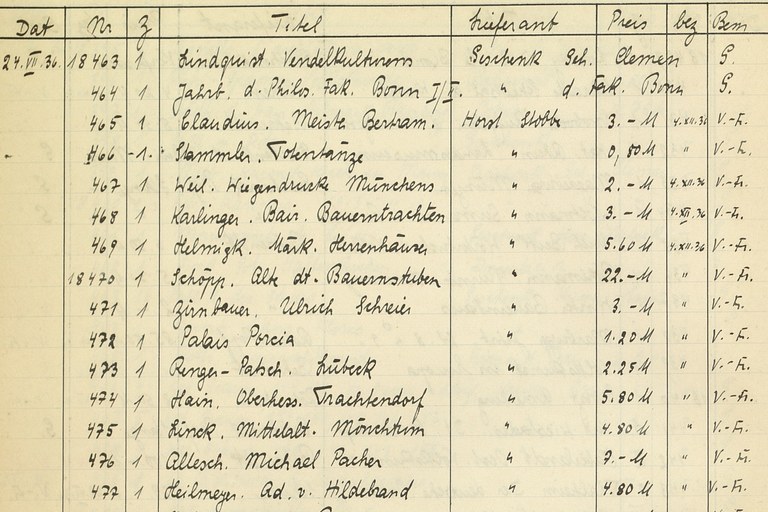 Dat Nr Z Titel Lieferant Preis bez Bem
24.VII.36. 18463 1 Lindquist. Vendelkulturens Geschenk Geh. Clemen G.
464 1 Jahrb. d. Philos. Fak. Bonn I/II. " d. Fak. Bonn G.
465 1 Claudius. Meister Bertram. Horst Stobbe 3.-M 4.XII.36 V.-Fr.
466 -1.- Stammler. Totentänze " 0,80M " V.-Fr.
467 1 Weil. Wiegendrucke Münchens " 2.-M 4.XII.36 V.-Fr.
468 1 Karlinger. Bair. Bauerntrachten " 3.-M 4.XII.36 V.-Fr.
469 1 Helmigk. Märk. Herrenhäuser " 5.60M 4.XII.36 V.-Fr.
18470 1 Schöpp. Alte dt. Bauernstuben " 22.-M " V.-Fr.
471 1 Zirnbauer. Ulrich Schreier " 3.-M " V.-Fr.
472 1 Palais Porcia " 1.20M " V.-Fr.
473 1 Renger-Patsch. Lübeck " 2.25M " V.-Fr.
474 1 Hain. Oberhess. Trachtendorf " 5.80M " V.-Fr.
475 1 Linck. Mittelalt. Mönchtum " 4.80M " V.-Fr.
476 1 Allesch. Michael Pacher " 7.-M " V.-Fr.
477 1 Heilmeyer. Ad. v. Hildebrand " 4.80M " V.-Fr.